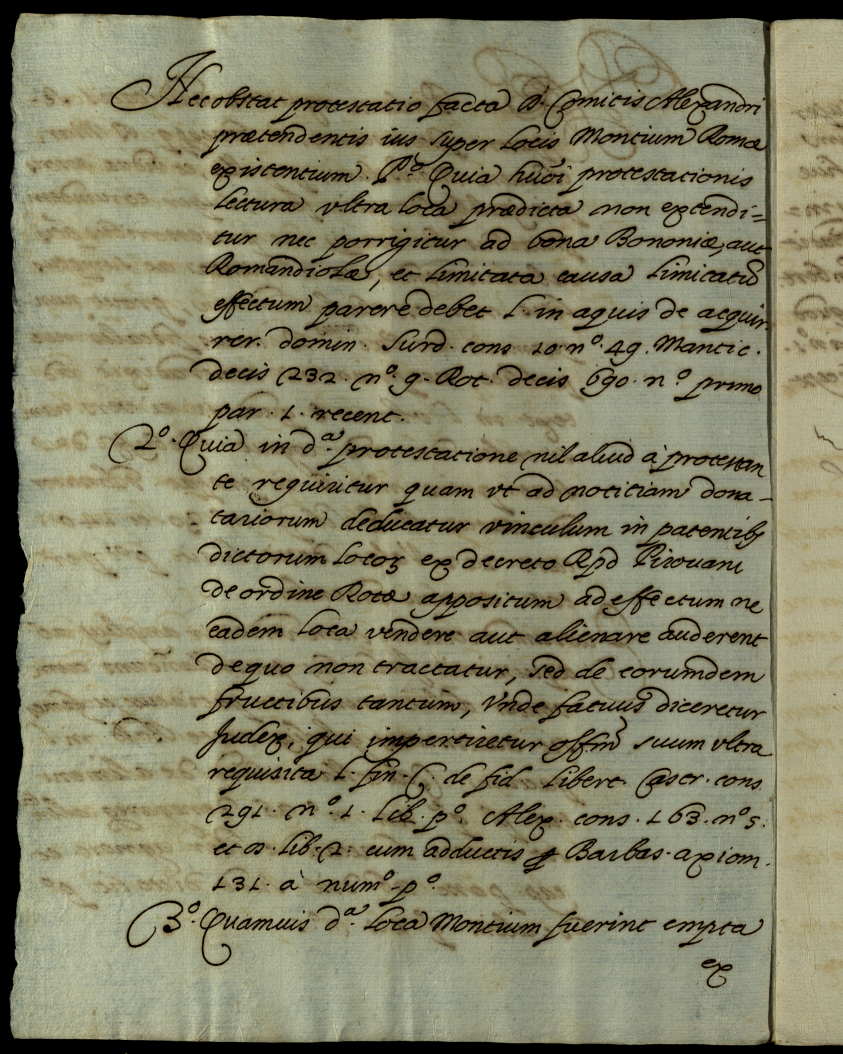 Nec obstat protestatio facta D. Comitis Alexandri
prætendentis ius super locis Montium Romæ
existentium. P.º Quia huõi protestationis
lectura vltra loca prædicta non extendi=
tur nec porrigitur ad bona Bononiæ, aut
Romandiolæ, et limitata causa limitatũ
effectum parere debet l. in aquis de acquir.
rer. domin. Surd. cons 10. nº. 49. Mantic.
decis 232. nº. 9. Rot. decis 690. nº primo
par. 1. recent.
2º. Quia in d.ª protestatione nil aliud à protestan
te requiritur quam vt ad notitiam dona-
tariorum deducatur vinculum in patentibꝫ
dictorum locoꝝ ex decreto Rpd Pirouani
de ordine Rotæ appositum ad effectum ne
eadem loca vendere aut alienare auderent
de quo non tractatur, sed de eorumdem
fructibus tantum, Vnde fatuus diceretur
Judex, qui impertiretur offm̃ suum vltra
requisita l. fin. C. de fid. libert. Castr. cons.
291. nº. 1. lib. pº. Alex. cons. 163. nº 5.
et 8. lib. 2. cum adductis ꝑ Barbas. axiom.
131. à numº. pº.
3º. Quamuis d.ª loca Montium fuerint empta
ex